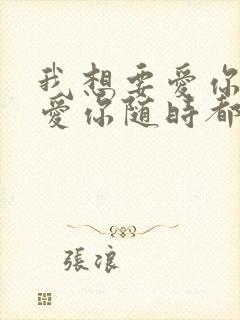 我想要愛你
愛你隨時都
張浪